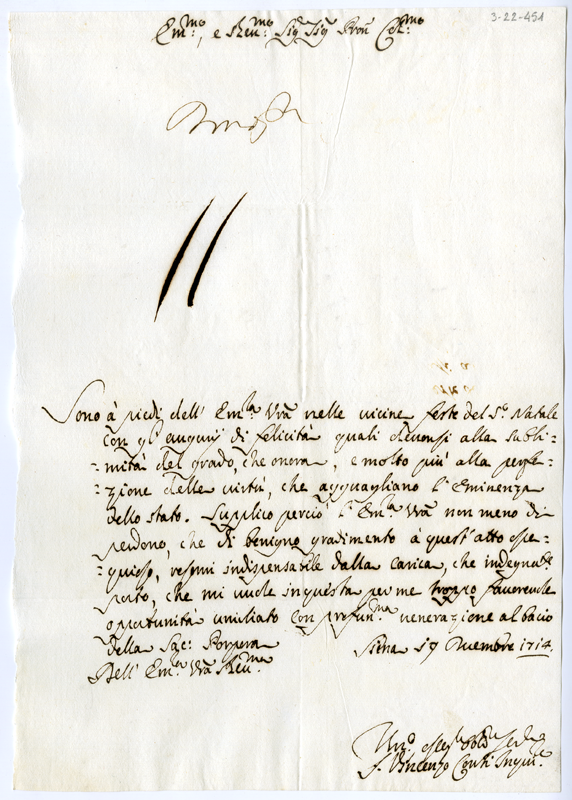 3-22-451
Em.mo, e Reu.mo Sig.r Sig.r Pron Col.mo
Sono à piedi dell' Em.za Vrã nelle vicine feste del S.o Natale
con gl' augurij di felicità quali deuonsi alla subli=
=mità del grado, che onora, e molto più alla perfe=
=zione delle virtù, che agguagliano l'Eminenza
dello stato. Supplico perciò l'Em.za Vrã non meno di
perdono, che di benigno gradimento à quest'atto osse=
=quioso, resomi indispensabile dalla carica, che indegnam.te
porto, che mi vuole in questa per me troppo fauoreuole
oportunità umiliato con profun.ma venerazione al bacio
della Sac: Porpora
Dell' Em.za Vrã Reu.ma
Siena 19 Xuembre 1714.
Um.o
F. Vincenzo Conti Inqui.re